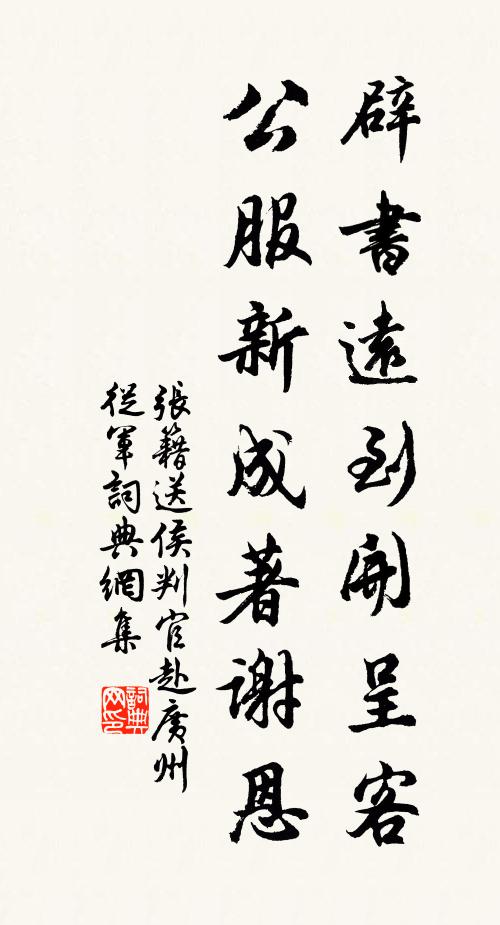 辟書遠到開呈客
公服新成著謝恩
張籍送侯判官赴廣州
從軍詞典網集
詞典网印